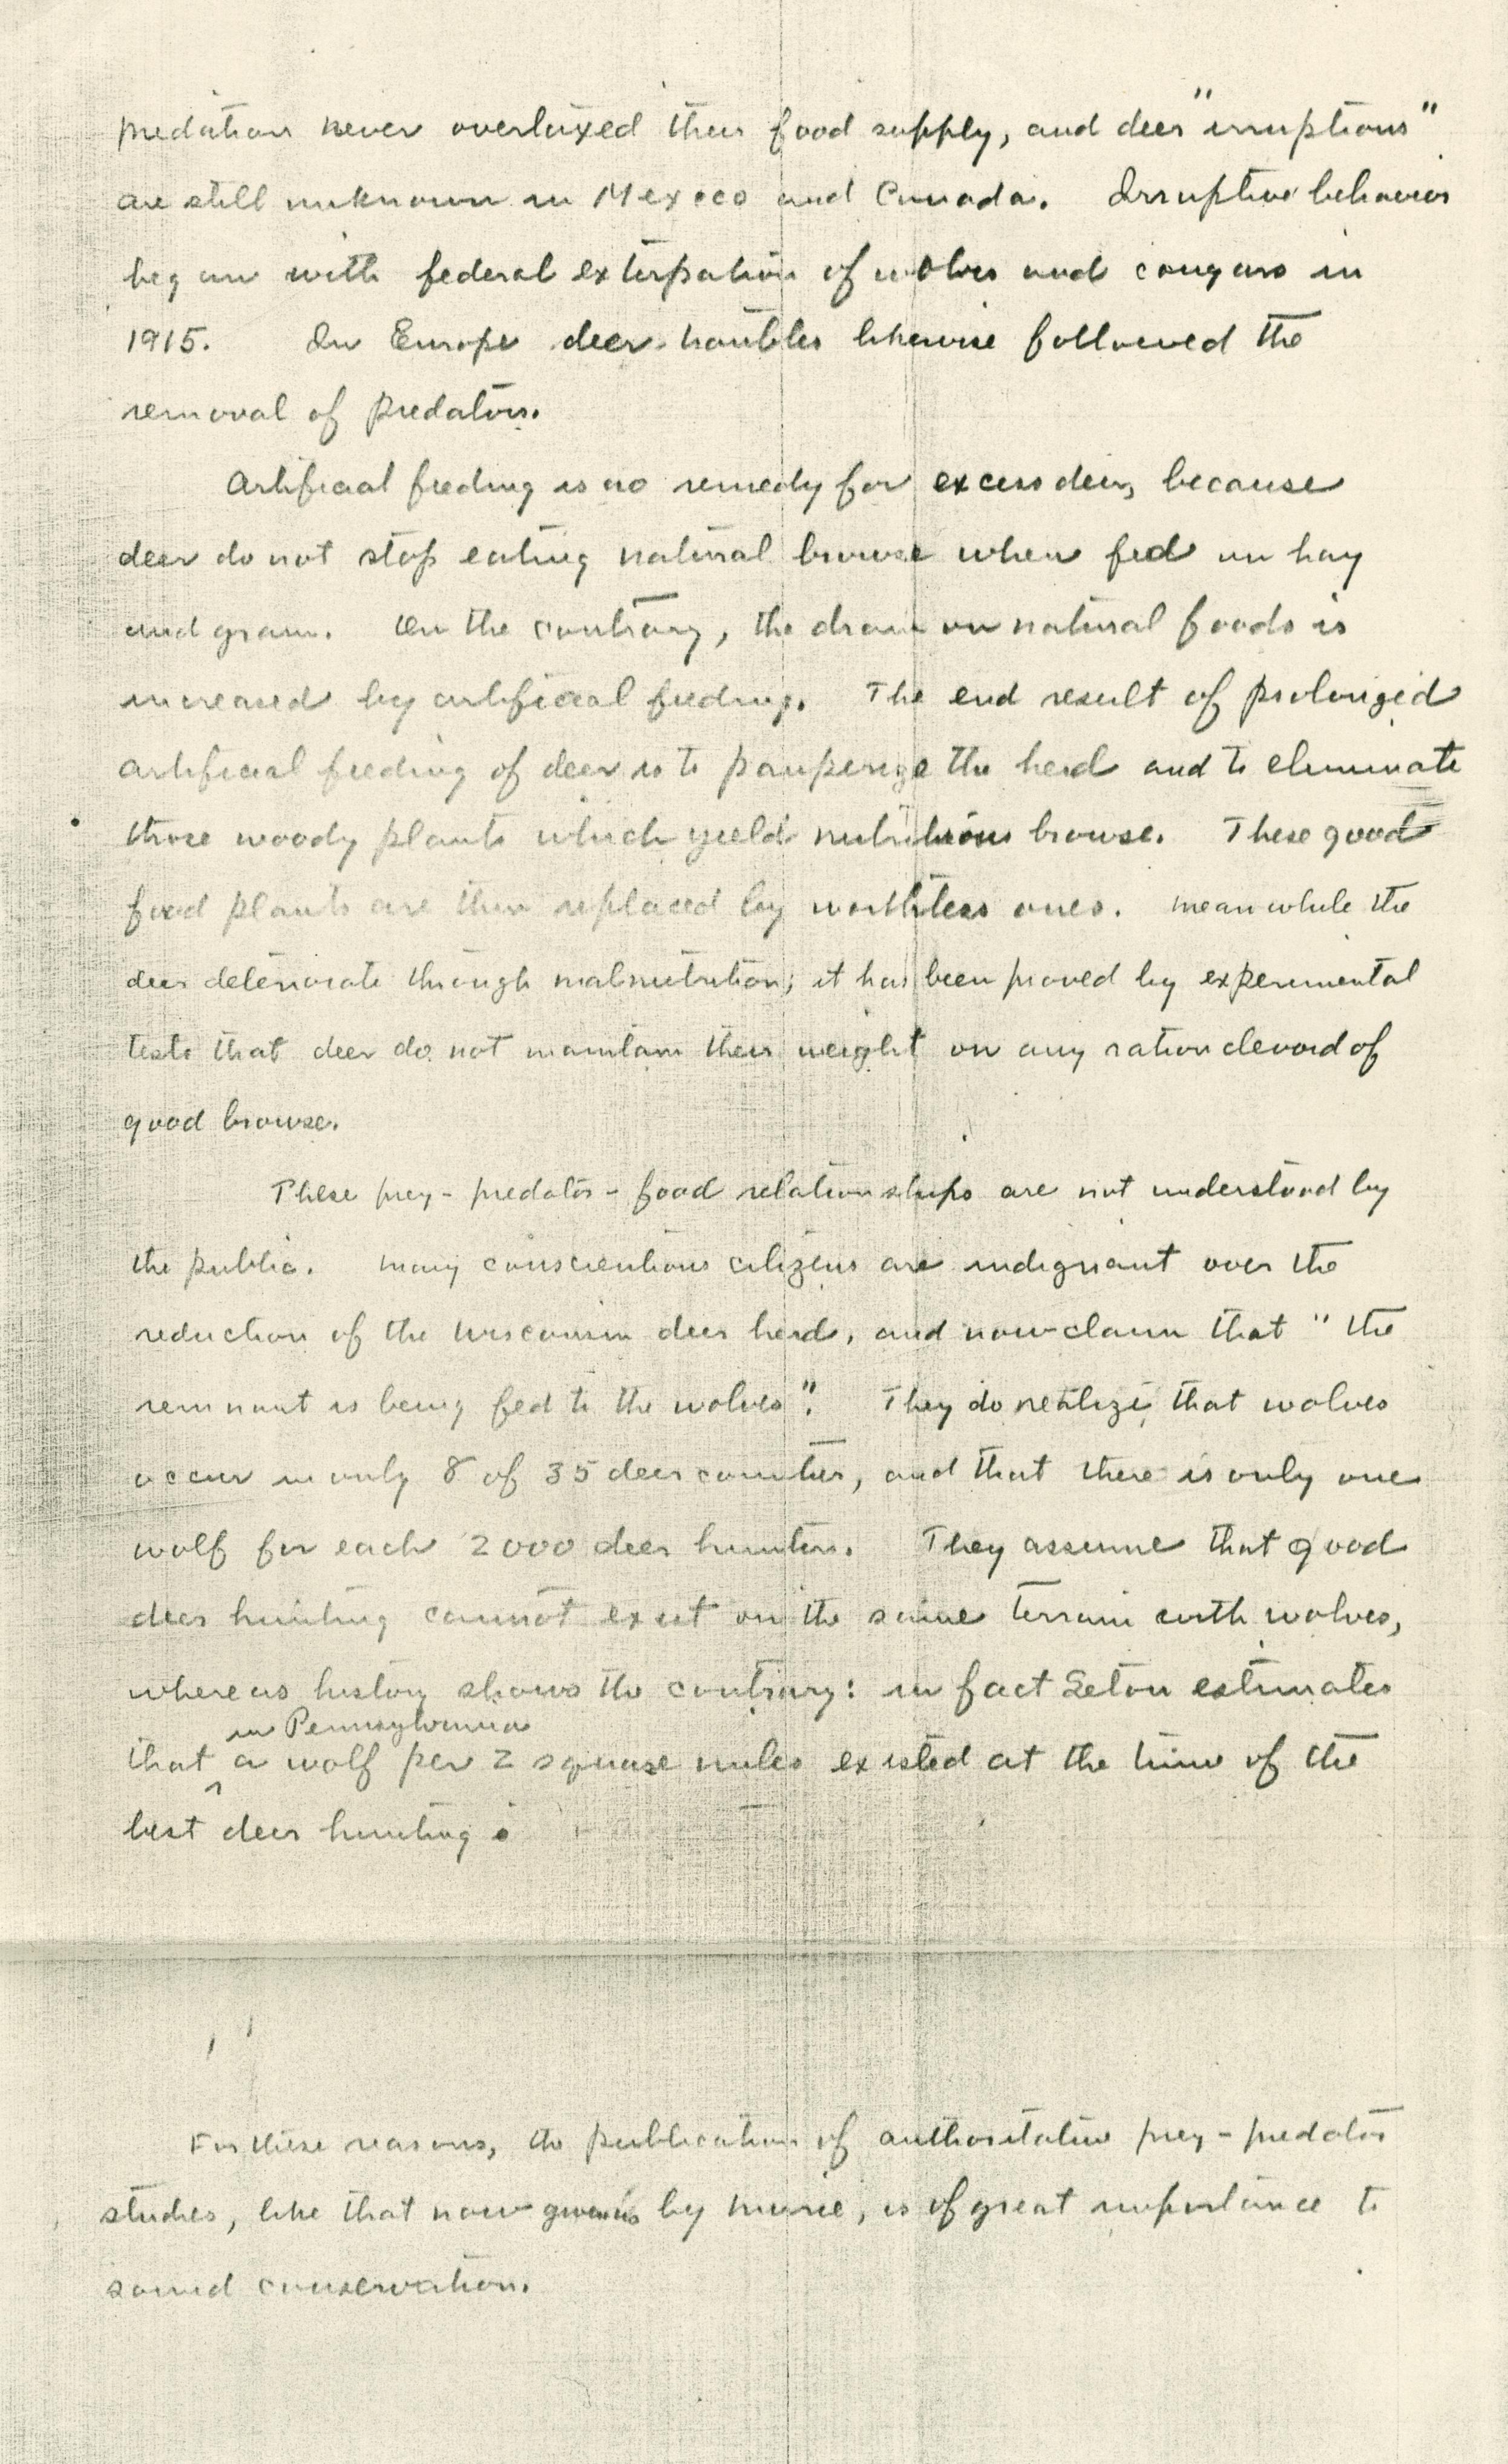 predation never overtaxed their food supply, and deer "irruptions"
are still unknown in Mexico and Canada. Irruptive behavior
began with federal extirpation of wolves and cougars in
1915. In Europe deer troubles likewise followed the
removal of predators.
Artificial feeding is no remedy for excess deer, because
deer do not stop eating natural browse when fed on hay
and grain. On the contrary, the drain on natural foods is
increased by artificial feeding. The end result of prolonged
artificial feeding of deer is to pauperize the herd and to eliminate
those woody plants which yield nutritious browse. These good
food plants are then replaced by worthless ones. Meanwhile the
deer deteriorate through malnutrition; it has been proved by experimental
tests that deer do not maintain their weight on any ration devoid of
good browse.
These prey-predator-food relationships are not understood by
the public. Many conscientious citizens are indignant over the
reduction of the Wisconsin deer herd, and now claim that "the
remnant is being fed to the wolves". They do realize that wolves
occur in only 8 of 35 deer counties, and that there is only one
wolf for each 2000 deer hunters. They assume that good
deer hunting cannot exist on the same terrain with wolves,
whereas history shows the contrary: in fact Seton estimates
in Pennsylvania
that ^ a wolf per 2 square miles existed at the time of the
best deer hunting.
For these reasons, the publication of authoritative prey-predator
studies, like that now given us by Murie, is of great importance to
sound conservation.